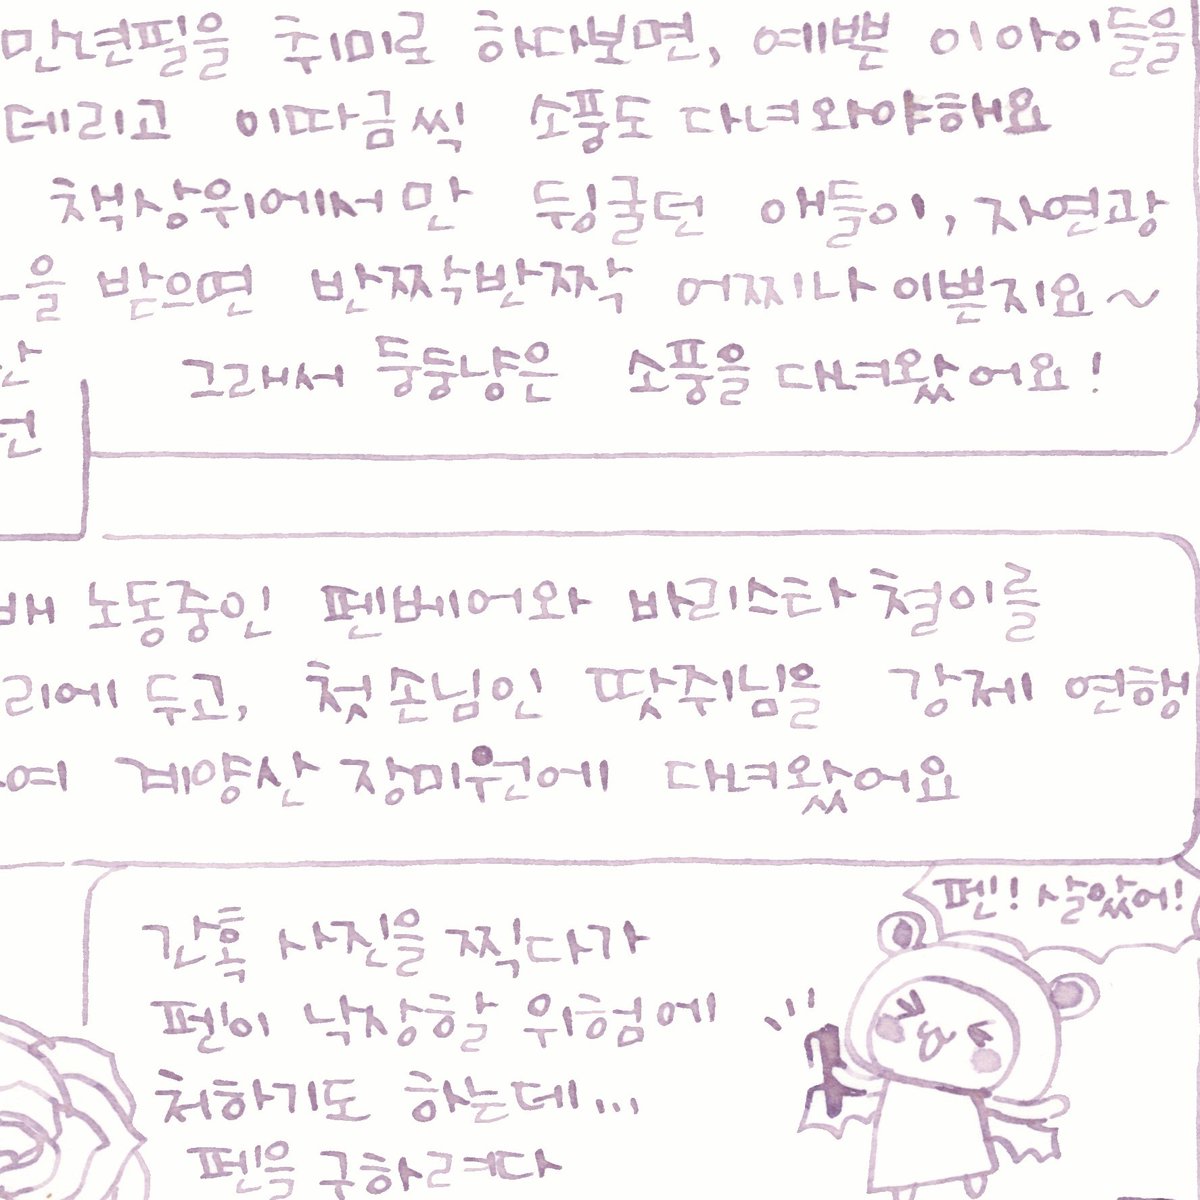 만년필을 취미로 하다보면, 예쁜 이 아이들을
데리고 이따금씩 소풍도 다녀와야해요
책상위에서만 뒹굴던 애들이, 자연광
을 받으면 반짝반짝 어찌나 이쁜지요~
그래서 둥둥냥은 소풍을 다녀왔어요!
노동중인 펜베어와 바리스타 철이를
리에 두고, 첫손님인 땃쥐님을 강제 연행
여 계양산 장미원에 다녀왔어요
펜! 살았어!
간혹 사진을 찍다가
펜이 낙상할 위험에
처하기도 하는데...
펜을 구하려다